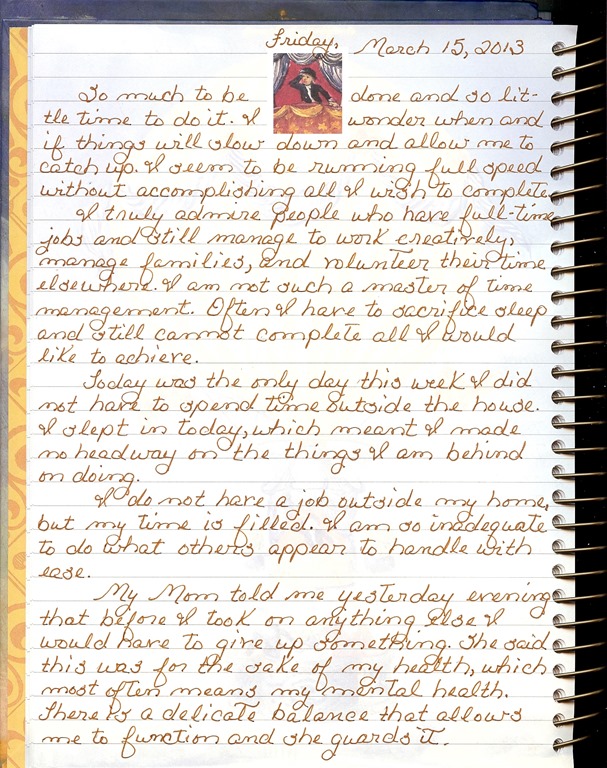 Friday, March 15, 2013
So much to be done and so lit-
tle time to do it. I wonder when and
if things will slow down and allow me to
catch up. I seem to be running full speed
without accomplishing all I wish to complete.
I truly admire people who have full-time
jobs and still manage to work creatively,
manage families, and volunteer their time
elsewhere. I am not such a master of time
management. Often I have to sacrifice sleep
and still cannot complete all I would
like to achieve.
Today was the only day this week I did
not have to spend time outside the house.
I slept in today, which meant I made
no headway on the things I am behind
on doing.
I do not have a job outside my home,
but my time is filled. I am so inadequate
to do what others appear to handle with
ease.
My Mom told me yesterday evening
that before I took on anything else I
would have to give up something. She said
this was for the sake of my health, which
most often means my mental health.
There is a delicate balance that allows
me to function and she guards it.